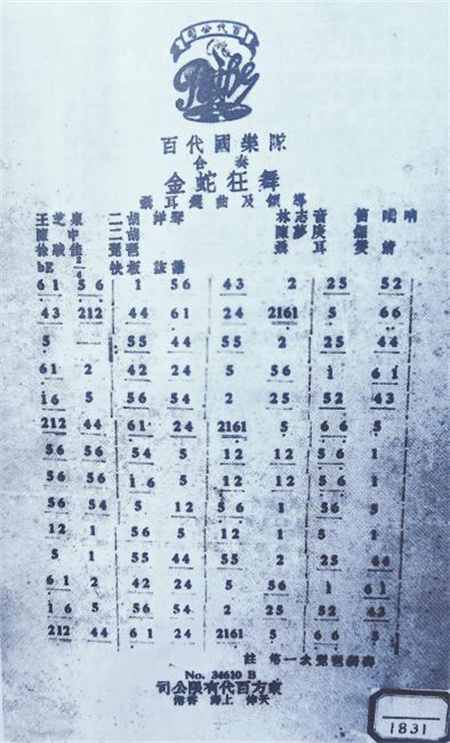 司公代百
Pathe
百代國樂隊
合奏
金蛇狂舞
聶耳選曲及領導
二胡 洋琴 林志音
二胡
琵琶 聶耳
bE 2/4 快板
61 56 1 56 43 2 25 52
43 212 44 61 24 2161 5 66
5 — 55 44 55 2 25 44
61 2 42 24 5 56 1 61
16 5 56 54 2 25 52 43
212 44 61 24 2161 5 66 5
56 56 54 5 12 12 56 1
56 56 16 5 12 12 56 1
56 54 5 12 56 1 56 5
12 1 56 5 12 1 5 1
5 1 55 44 55 2 25 44
61 2 42 24 5 56 1 61
16 5 56 54 2 25 52 43
212 44 61 24 2161 5 66 5
註 第一次琵琶獨奏
No. 34610 B
東方百代有限公司
天津 上海 香港
1831